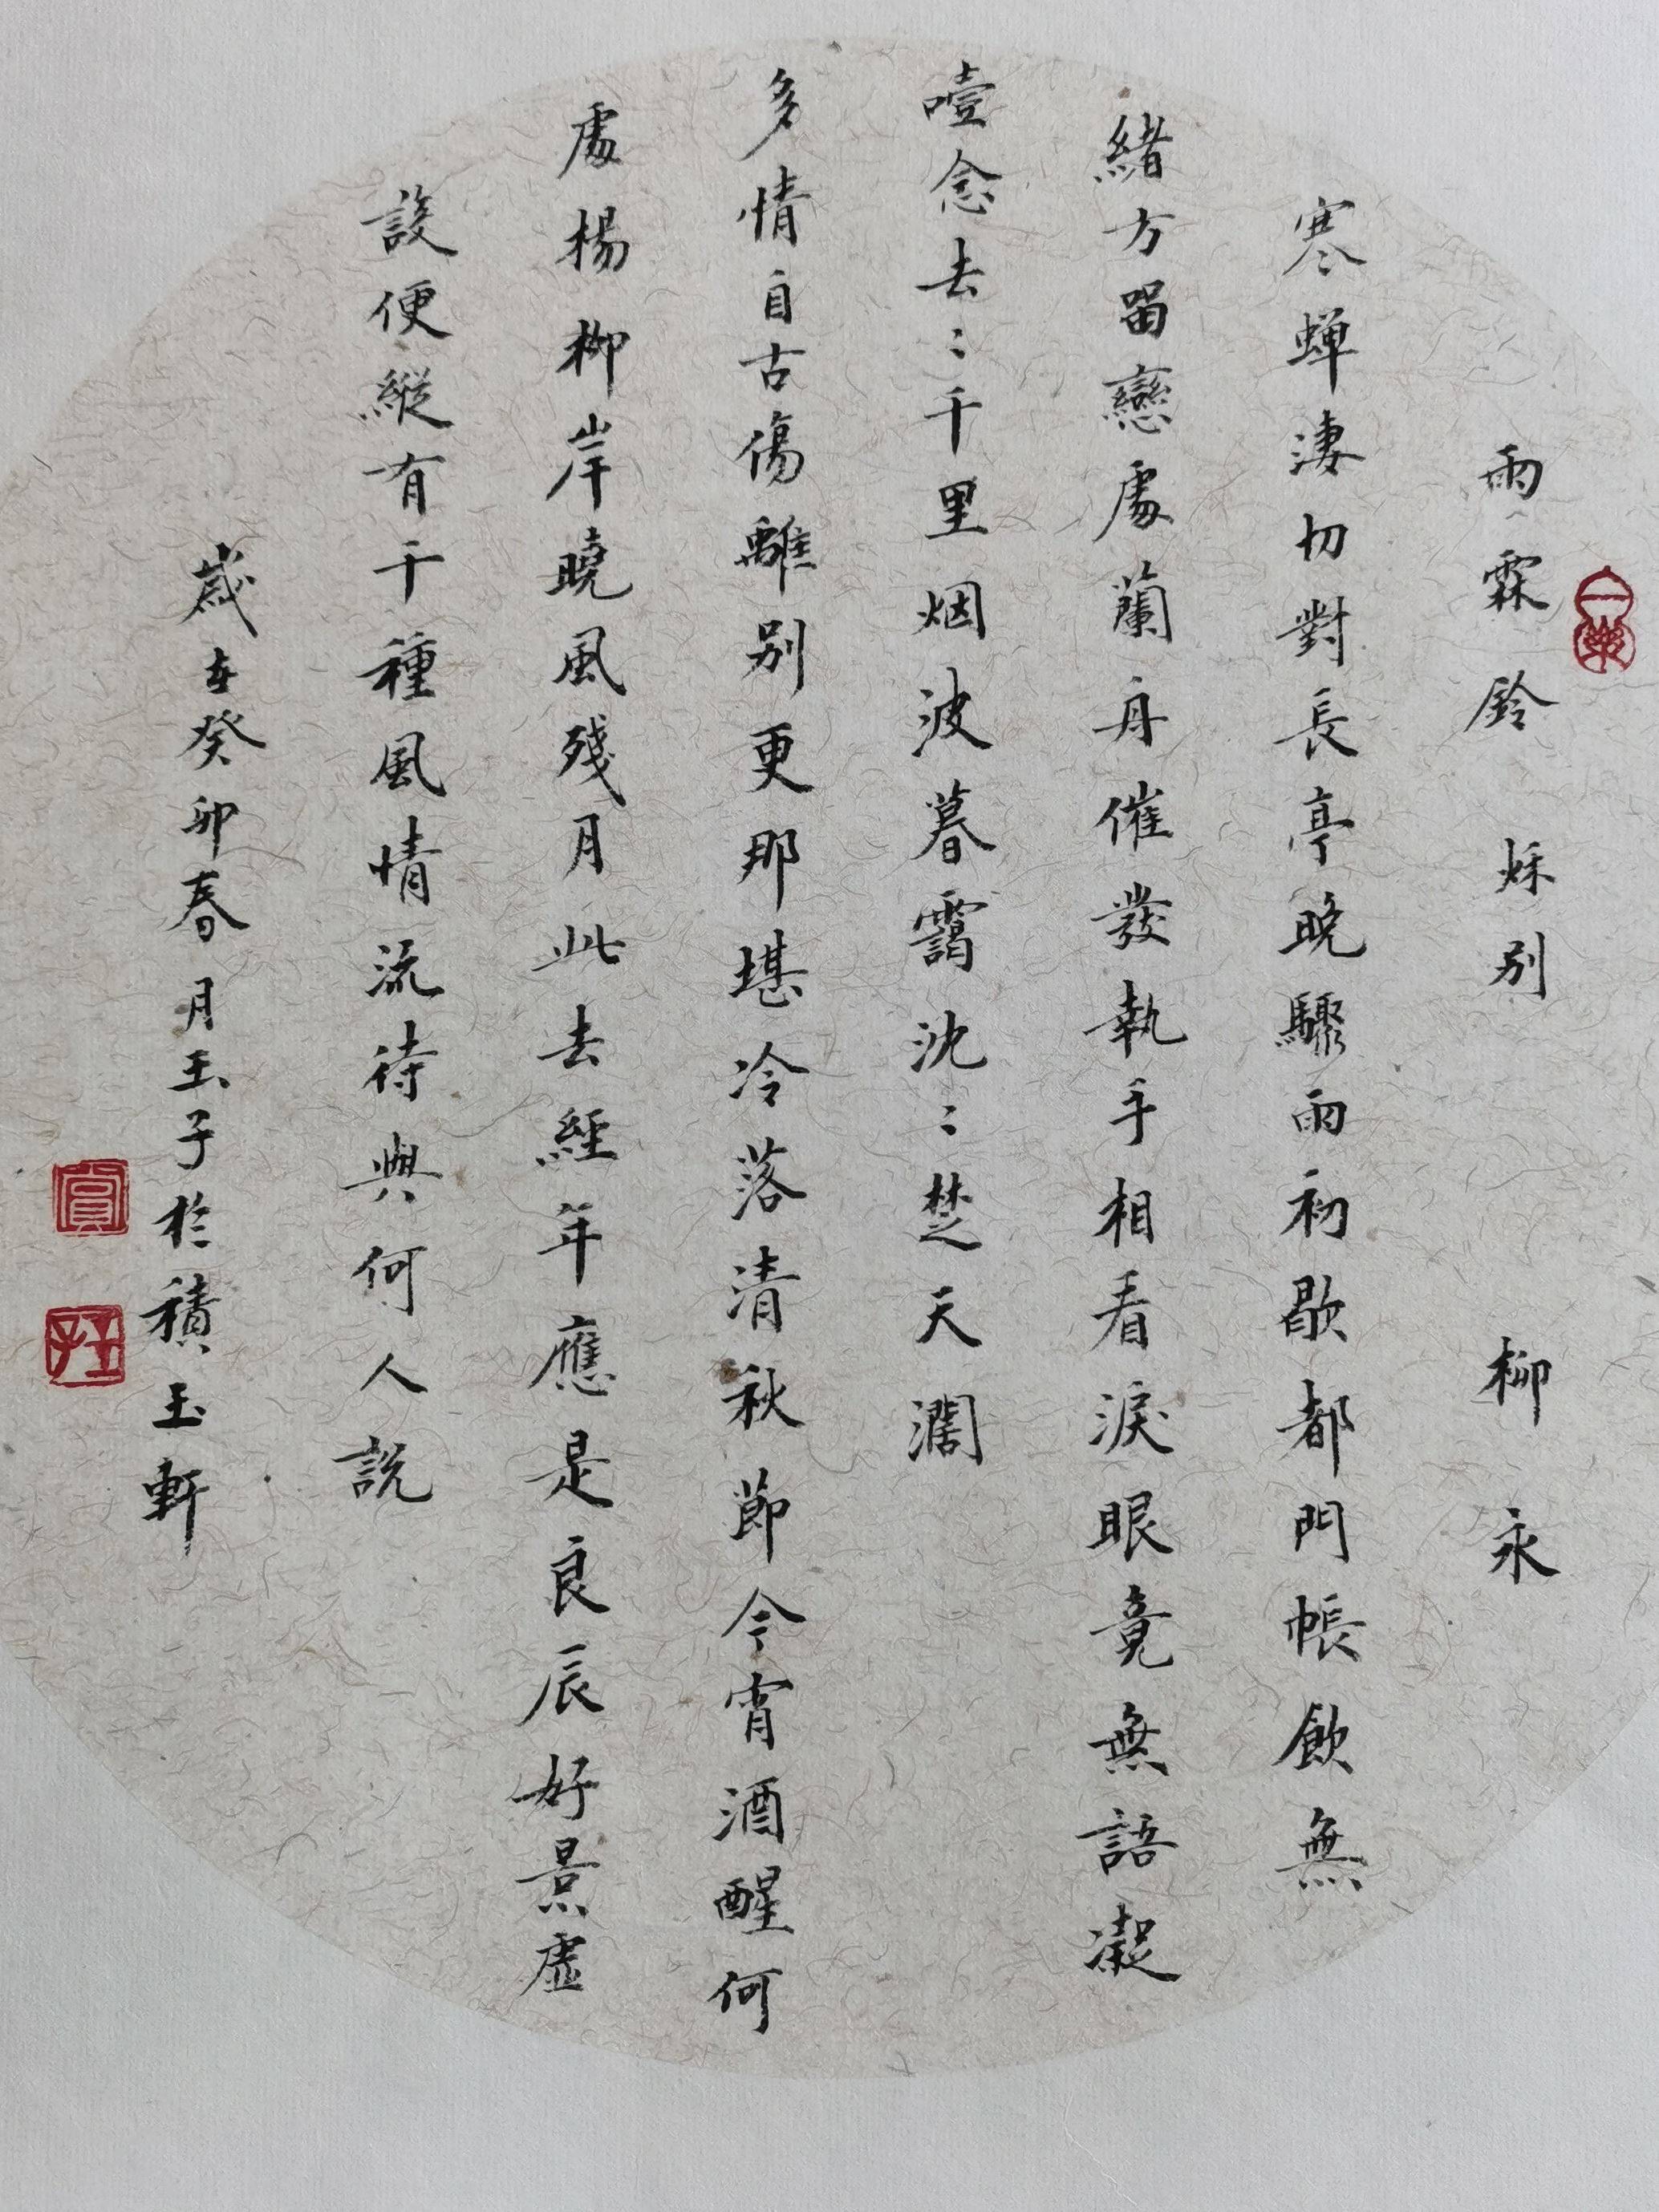 雨霖鈴 秌别 柳永
寒蝉淒切對長亭晚驟雨初歇都門帳飲無
緒方留戀處蘭舟催發執手相看淚眼竟無語凝
噎念去〻千里烟波暮靄沈〻楚天濶
多情自古傷離别更那堪冷落清秋節今宵酒醒何
處楊柳岸曉風殘月此去經年應是良辰好景虛
設便縱有千種風情流待與何人説
歲在癸卯春月玉子於積玉軒